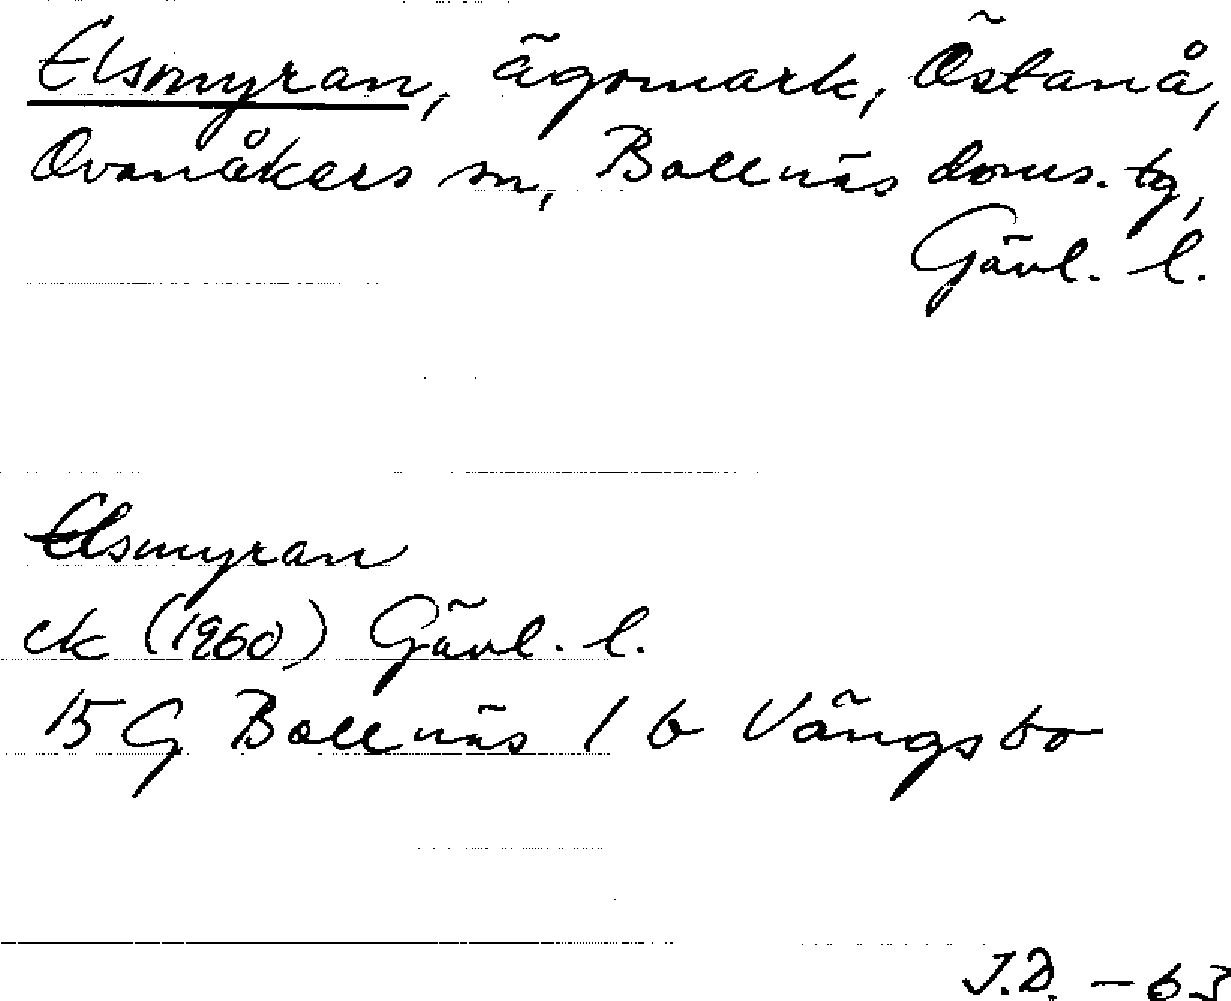 Elsmyran, ägomark, Östanå,
Ovanåkers sn, Bollnäs doms. tg,
Gävl. l.
Elsmyran
ek (1960) Gävl. l.
15 G Bollnäs 1 b Vängsbo
J.D. - 63